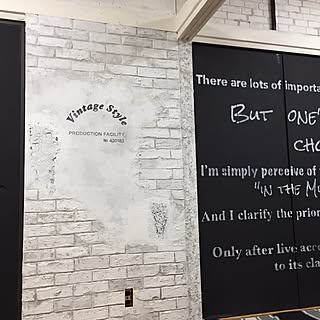 Vintage Style
PRODUCTION FACILITY
№ 420183
There are lots of importa
BUT ONE'
CHO
I'm simply perceive of
"IN THE MU
And I clarify the prior
Only after live acc
to its cla